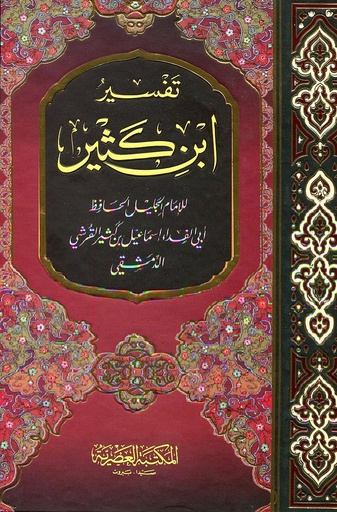 تَفْسِيرُ
ابْنِ كَثِيرٍ
للإمام الجليل الحافظ
أبي الفداء اسماعيل بن كثير القرشي
الدمشقي
المكتبة العصرية
صيدا - بيروت